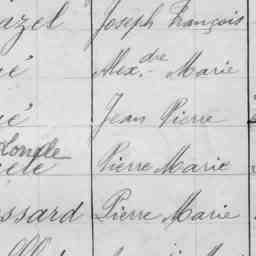 azel Joseph François
é Alex.dre Marie
é Jean Pierre
Londe
Pierre Marie
ssard Pierre Marie